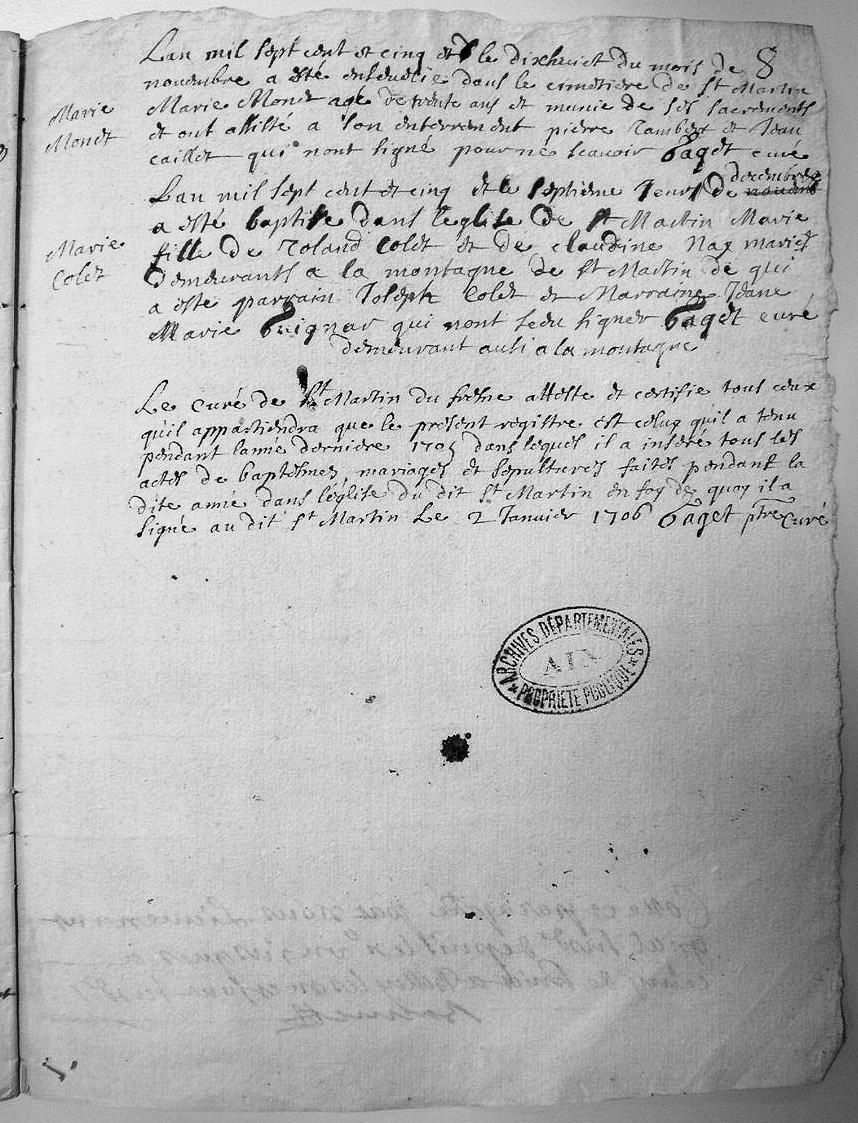 Lan mil sept cent et cinq et le dixhuict du mois de 8
novembre a esté ensevelie dans le cimetiere de St Martin
Marie Monet agé de trente ans et munie de ses sacrements
et ont assisté a son enterrement pierre Lambert et Jean
caillet qui nont signé pour ne scavoir Baget curé
Marie
Monet
decembre
Lan mil sept cent et cinq et le septieme Jour de novemb
a esté baptisée dans leglise de st Martin Marie
fille de Roland Colet et de claudine Nay mariés
demeurants a la montagne de st Martin de qui
a esté parrain Joseph Colet et Marraine Jeane
Marie qui nont sceu signer Baget curé
demeurant aussi a la montagne
Marie
Colet
Le Curé de St Martin du fresne atteste et certifie tous ceux
quil appartiendra que le present registre est celuy quil a tenu
pendant lannée derniere 1705 dans lequel il a inseré tous les
actes de baptesmes mariages et sepultures faites pendant la
dite année dans léglise du dit St Martin en foy de quoy il a
signé au dit St Martin Le 2 Janvier 1706 Baget ptre Curé
ARCHIVES DÉPARTEMENTALES
AIN
PROPRIÉTÉ PUBLIQUE